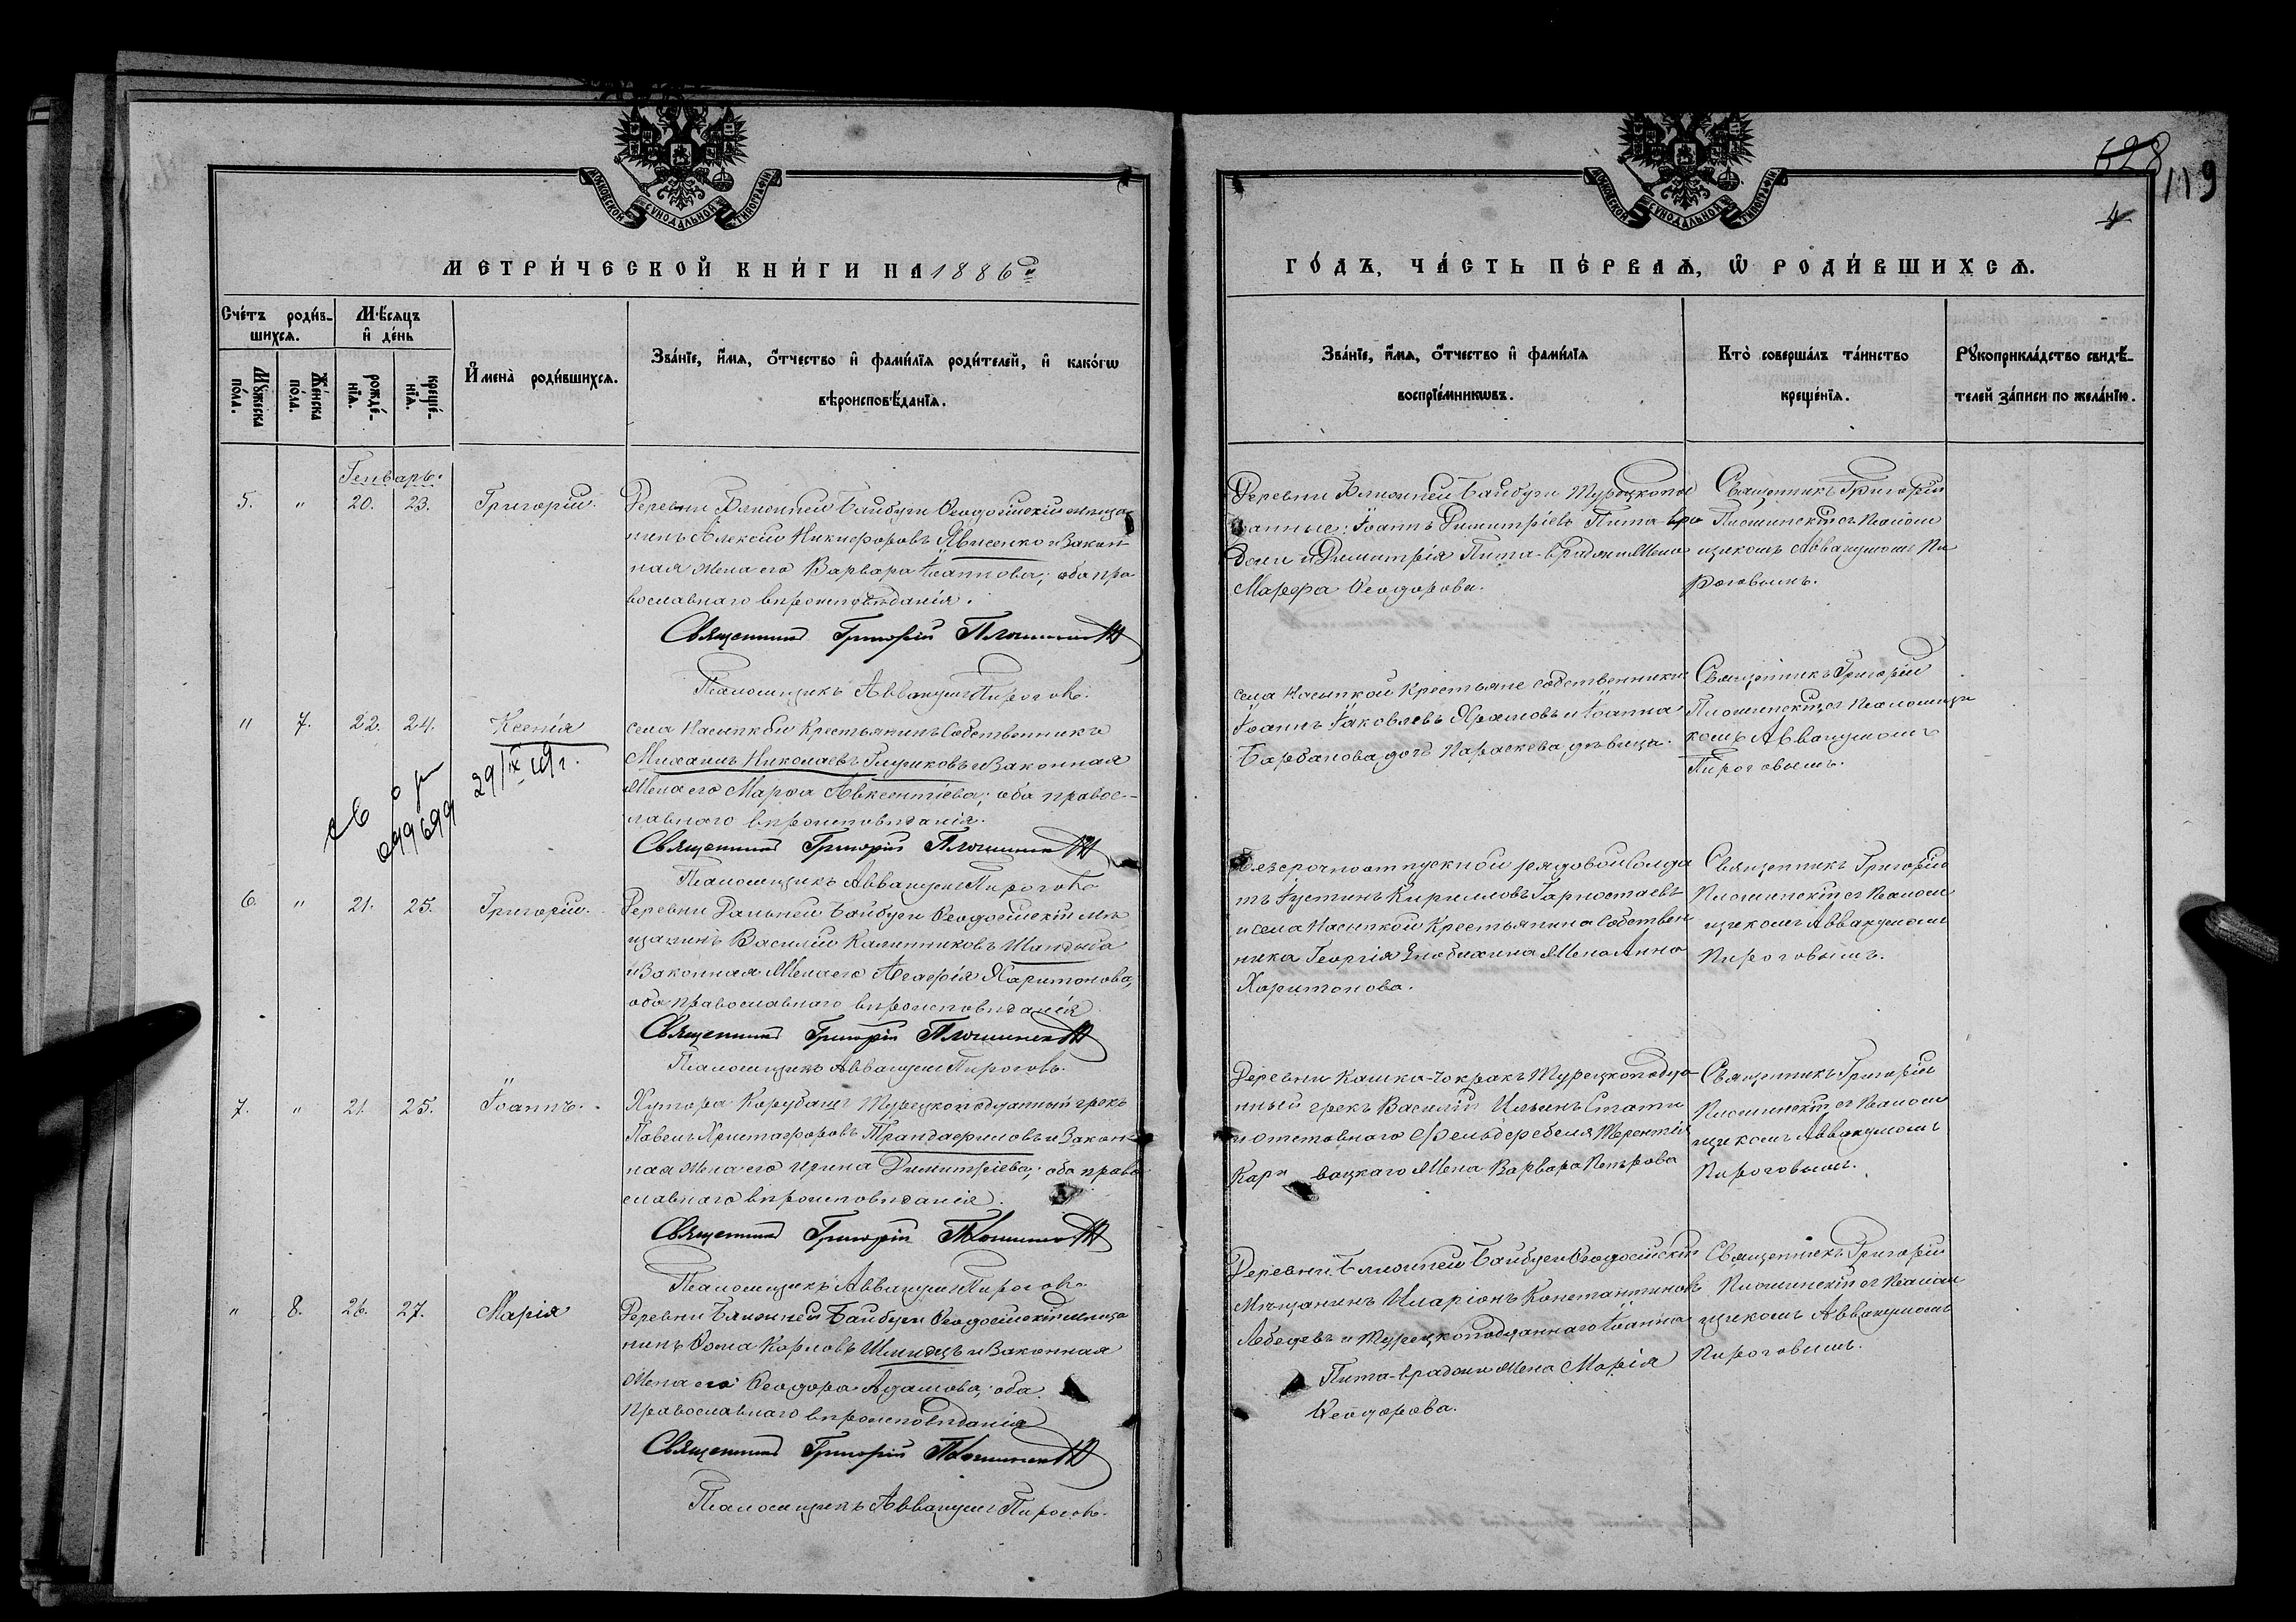 МОСКОВСКОЙ СѴНОДАЛЬНОЙ ТИПОГРАФІИ
МЕТРИ́ЧЕСКОЙ КНИ́ГИ НА 1886й
Сче́тъ роди́в-
шихся.
Мѣ́сяцъ
и҆ де́нь
Мꙋ́жеска
по́ла.
Же́нска
по́ла.
рожде́-
нїѧ.
креще́-
нїѧ.
И҆мена̀ роди́вшихсѧ.
Зва́нїе, и҆́мѧ, ѻ҆́тчество и҆ фами́лїѧ роди́телей, и҆ како́гѡ
вѣроисповѣ́данїѧ.
Генварь.
5. " 20. 23. Григорій.
Деревни Ближней Байбуги Ѳеодосійскій мѣща-
нинъ Алексій Никифоровъ Явисенко и Закон-
ная жена его Варвара Іоаннова; оба пра
вославнаго вѣроисповѣданія.
Священникъ Григорій Плошинскій
Псаломщикъ Аввакумъ Пироговъ.
" 7. 22. 24. Ксенія
29/IX 19 г.
099699
села Насыпкой Крестьянинъ Собственникъ
Михаилъ Николаевъ Глушковъ и Законная
жена его Марѳа Авксентіева; оба правос-
лавнаго вѣроисповѣданія.
Священникъ Григорій Плошинскій
Псаломщикъ Аввакумъ Пироговъ
6. " 21. 25. Григорій.
Деревни Дальней Байбуги Ѳеодосійскій мѣ
щанинъ Василій Калинниковъ Шандыба
и Законная жена его Агафія Харитонова,
оба православнаго вѣроисповѣданія
Священникъ Григорій Плошинскій
Псаломщикъ Аввакумъ Пироговъ.
7. " 21. 25. Іоаннъ.
Хутора Корубашъ Турецкоподданный грекъ
Павелъ Христофоровъ Трандафиловъ и Закон-
ная жена его Ирина Димитріева; оба право
славнаго вѣроисповѣданія.
Священникъ Григорій Плошинскій
Псаломщикъ Аввакумъ Пироговъ
" 8. 26. 27. Марія
Деревни Ближней Байбуги Ѳеодосійскій мѣща
нинъ Ѳома Карловъ Шмидтъ и Законная
жена его Ѳеодора Адамова; оба
православнаго вѣроисповѣданія
Священникъ Григорій Плошинскій
Псаломщикъ Аввакумъ Пироговъ.
628
119
4
МОСКОВСКОЙ СѴНОДАЛЬНОЙ ТИПОГРАФІИ
ГО́ДЪ, ЧА́СТЬ ПЕ́РВАѦ, Ѡ҆ РОДИ́ВШИХСѦ.
Зва́нїе, и҆́мѧ, ѻ҆́тчество и҆ фами́лїѧ
воспрїе́мникѡвъ.
Кто̀ соверша́лъ та́инство
креще́нїѧ.
Рꙋкоприкла́дство свидѣ́-
телей за́писи по жела́нїю.
Деревни Ближней Байбуги Турецкопод
данные: Іоаннъ Димитріевъ Пита-вра
доли и Димитрія Пита-Врадоли жена
Марфа Ѳеодорова.
Священникъ Григорій
Плошинскій съ Псалом
щикомъ Аввакумомъ Пи
роговымъ.
села Насыпкой Крестьяне собственники
Іоаннъ Іаковлевъ Храмовъ и Іоанна
Барбанова дочь Параскева дѣвица.
Священникъ Григорій
Плошинскій съ Псаломщи
комъ Аввакумомъ
Пироговымъ.
Безсрочноотпускной рядовой солда
тъ Іустинъ Кирилловъ Гарностаевъ
и села Насыпкой Крестьянина Собствен
ника Георгія жена Анна
Харитонова.
Священникъ Григорій
Плошинскій съ Псалом
щикомъ Аввакумомъ
Пироговымъ.
Деревни Кашка-Чокракъ Турецкоподда-
нный грекъ Василій Ильинъ Стати
и отставного Фельдфебеля Терентія
вацкаго жена Варвара Петрова
Священникъ Григорій
Плошинскій съ Псалом
щикомъ Аввакумомъ
Пироговымъ.
Деревни Ближней Байбуги Ѳеодосійскій
Мѣщанинъ Иларіонъ Константиновъ
Лебедевъ и Турецкоподданнаго Іоанна
Пита-врадоли жена Марія
Ѳеодорова.
Священникъ Григорій
Плошинскій съ Псалом
щикомъ Аввакумомъ
Пироговымъ.